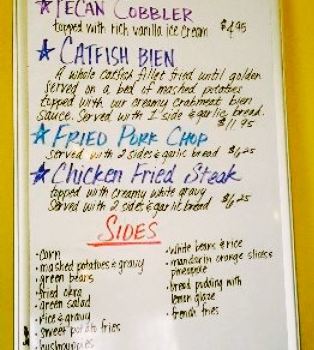 PECAN COBBLER
topped with rich vanilla ice cream $4.95
CATFISH BIEN
A whole catfish fillet fried until golden
served on a bed of mashed potatoes
topped with our creamy crabmeat bien
sauce. Served with 1 side & garlic bread.
$11.95
FRIED PORK CHOP
served with 2 sides & garlic bread $6.25
Chicken Fried Steak
topped with creamy white gravy
Served with 2 sides & garlic bread $6.25
SIDES
• corn
• mashed potatoes & gravy
• green beans
• fried okra
• green salad
• rice & gravy
• sweet potato fries
• hushpuppies
• white beans & rice
• mandarin orange slices &
pineapple
• bread pudding with
lemon glaze
• french fries